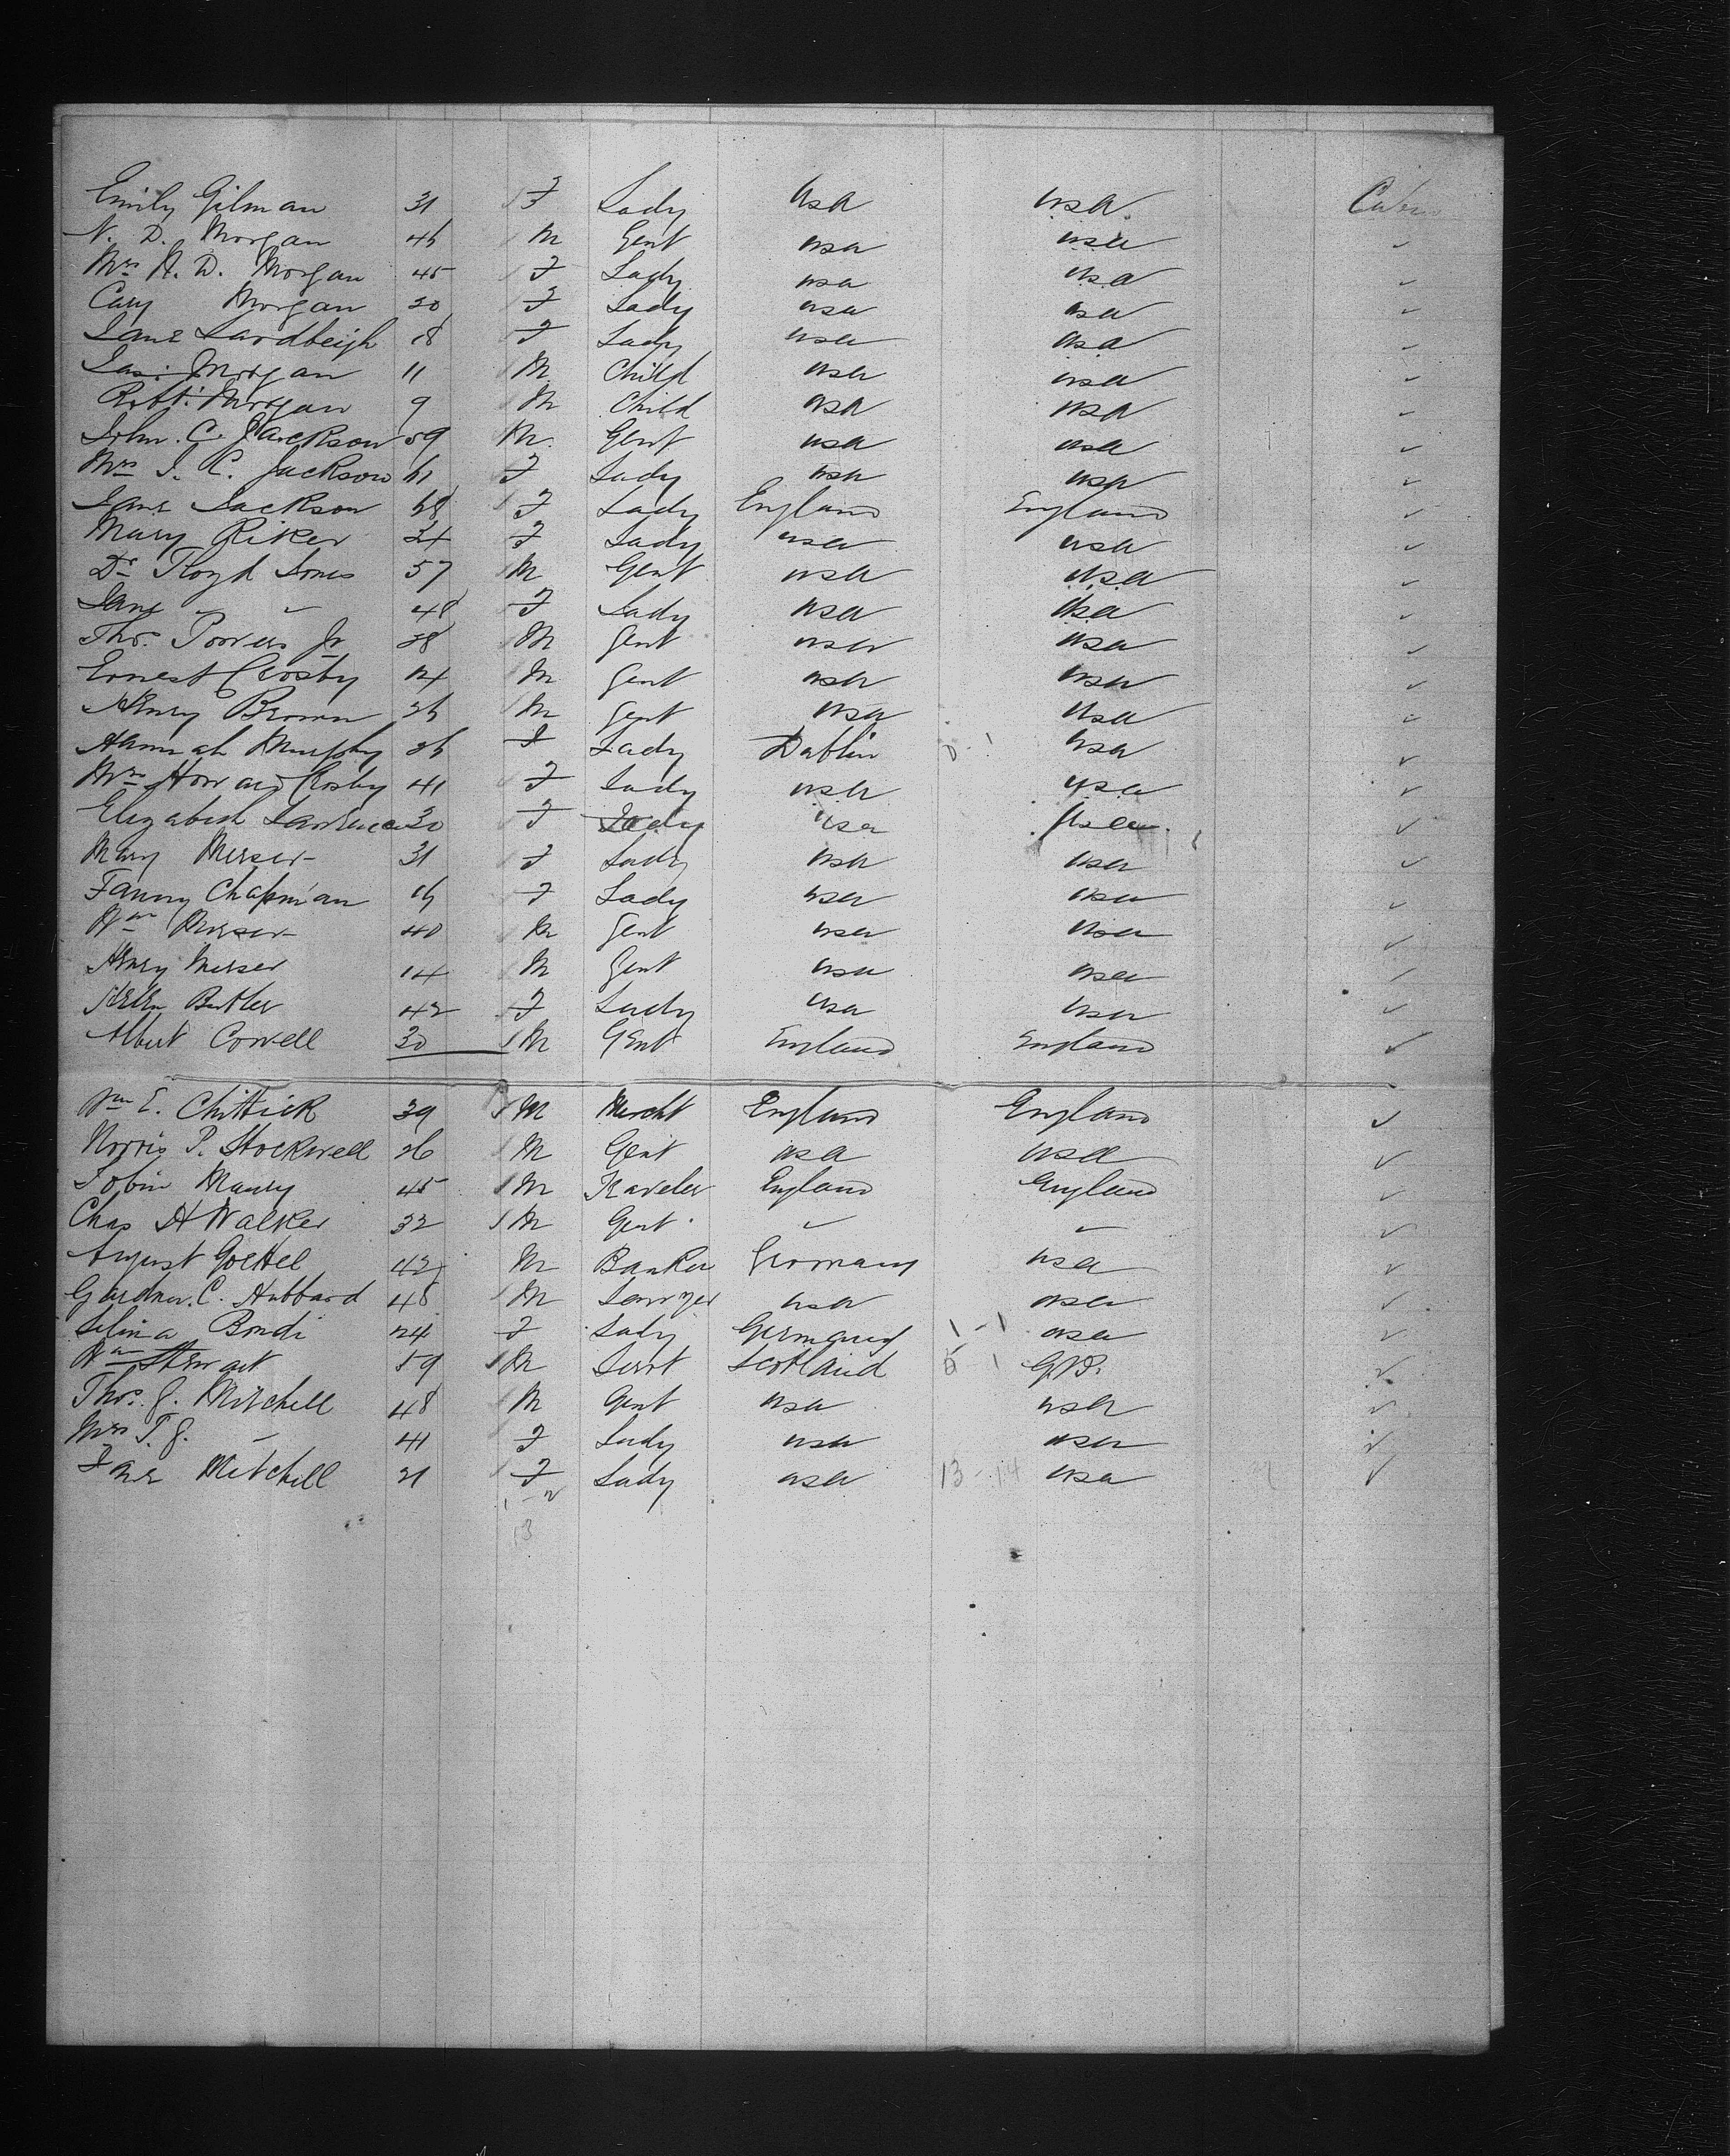 Emily Gilman 31 F Lady Usa Usa Cabin
N. D. Morgan 46 M Gent usa usa
Mrs N. D. Morgan 45 F Lady usa usa
Cary Morgan 20 F Lady usa usa
Jane 18 F Lady usa usa
Jas: Morgan 11 M Child usa usa
Robt: Morgan 9 M Child usa usa
John. C. Jackson 59 M. Gent usa usa
Mrs J. C. Jackson 61 F Lady usa usa
Jane Jackson 68 F Lady England England
Mary Riker 24 F Lady usa usa
Dr Floyd Jones 57 M Gent usa usa
Jane 〃 〃 48 F Lady usa usa
Thos. Powers Jr 28 M Gent usa usa
Ernest Crosby M Gent usa usa
Henry Brown 26 M Gent usa usa
Hannah Murphy 26 F Lady Dublin usa
Mrs Howard Crosby 41 F Lady usa usa
Elizabeth Lawrence 30 F Lady usa
Mary Merser 31 F Lady usa usa
Fanny Chapman 16 F Lady usa usa
Wm Merser 40 M Gent usa usa
Henry Merser 14 M Gent usa usa
Butler 42 F Lady usa usa
Albert Cowell 30 M Gent England England
Wm E. Chittick 39 M Mercht England England
Norris P. Stockwell 26 M Gent usa usa
Tobin Maury 45 M Traveler England England
Chas H Walker 32 M Gent 〃 〃
August Goettel 42 M Banker Germany usa
Gardner. C. Hubbard 48 M Lawyer usa usa
Selina Bondi 24 F Lady Germany 1 - 1 usa
Wm Stewart 59 M Servt Scotland 1 G.B.
Thos. J. Mitchell 48 M Gent usa usa
Mrs T. J. 〃 41 F Lady usa usa
Jane Mitchell 21 F Lady usa 13 - 14 usa
13